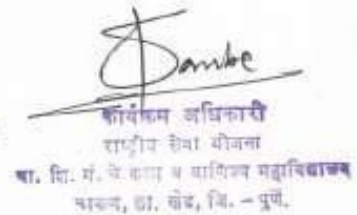 कार्यक्रम अधिकारी
राष्ट्रीय सेवा योजना
शि. मं. चे कला व वाणिज्य महाविद्यालय
चाकण, ता. खेड, जि. – पुणे.